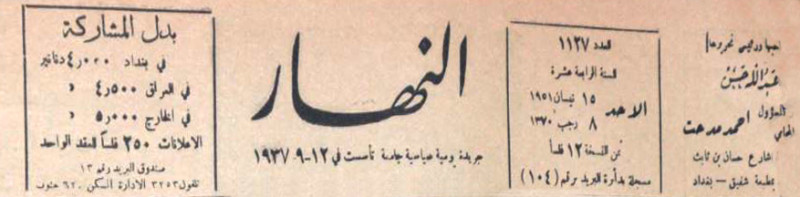 صاحبها ورئيس تحريرها
عبد الله حسن
المسؤول
المحامي احمد مدحت
شارع حسان بن ثابت
مطبعة شفيق - بغداد
العدد ١١٢٧
السنة الرابعة عشرة
الاحد
١٥ نيسان ١٩٥١
٨ رجب ١٣٧٠
ثمن النسخة ١٢ فلساً
مسجلة بدائرة البريد برقم (١٠٤)
النهار
جريدة يومية سياسية جامعة تأسست في ١٢-٩-١٩٣٧
بدل المشاركة
في بغداد ٤٫٠٠٠ دنانير
في العراق ٤٫٥٠٠ »
في الخارج ٥٫٠٠٠ »
الاعلانات ٢٥٠ فلساً للعقد الواحد
صندوق البريد رقم ١٣
تلفون ٣٢٥٣ الادارة السكن ٦٢٠ جنوب